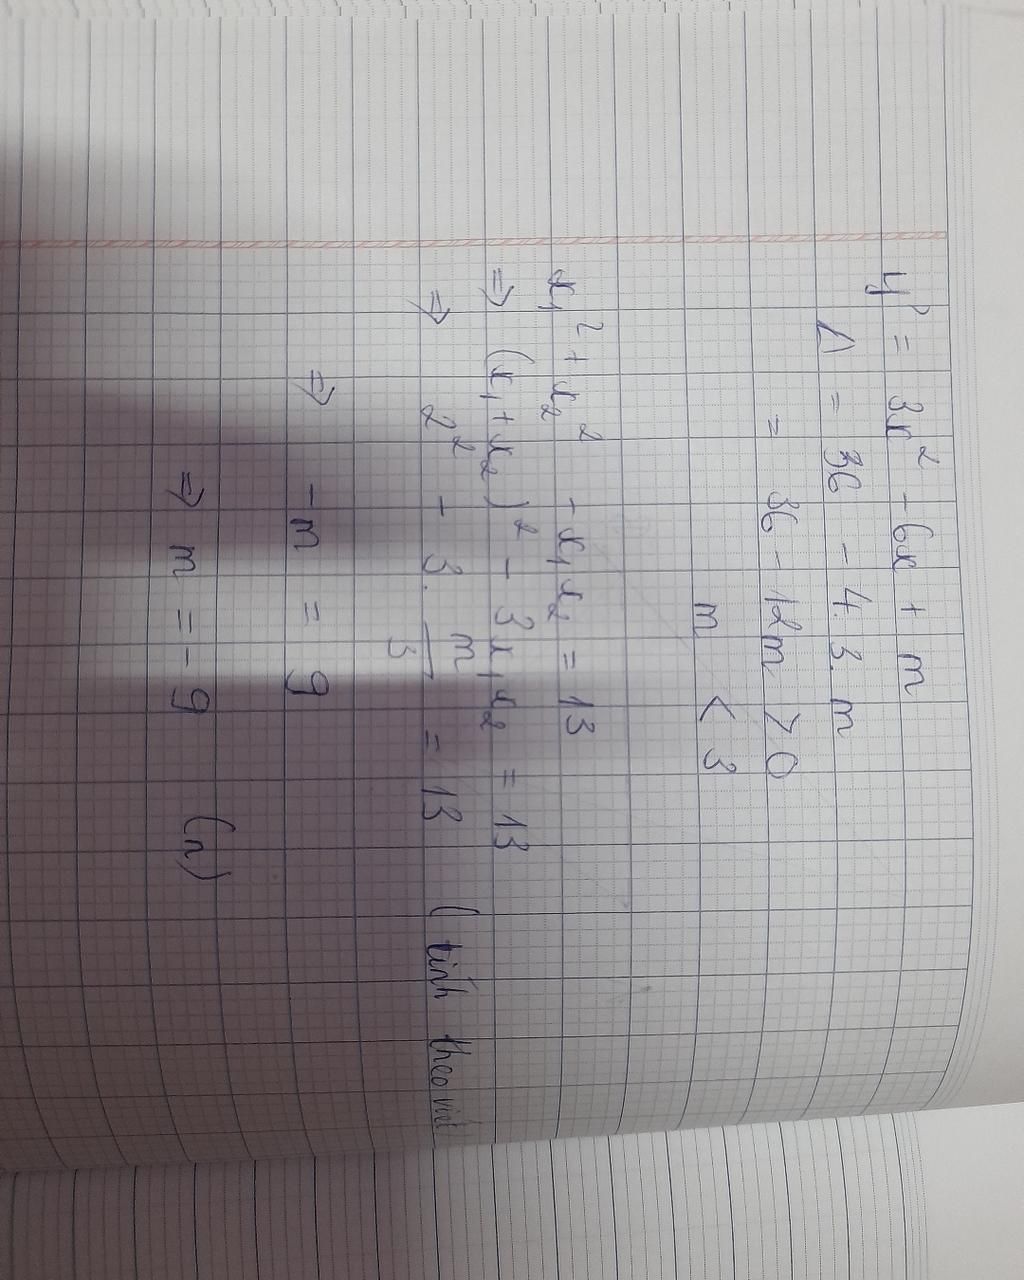 y' = 3x² - 6x + m
Δ = 36 - 4.3.m
= 36 - 12m > 0
m < 3
x₁² + x₂² - x₁x₂ = 13
⇒ (x₁ + x₂)² - 3x₁x₂ = 13
⇒ 2² - 3. m/3 = 13 (tính theo viet
⇒ -m = 9
⇒ m = -9 (n)